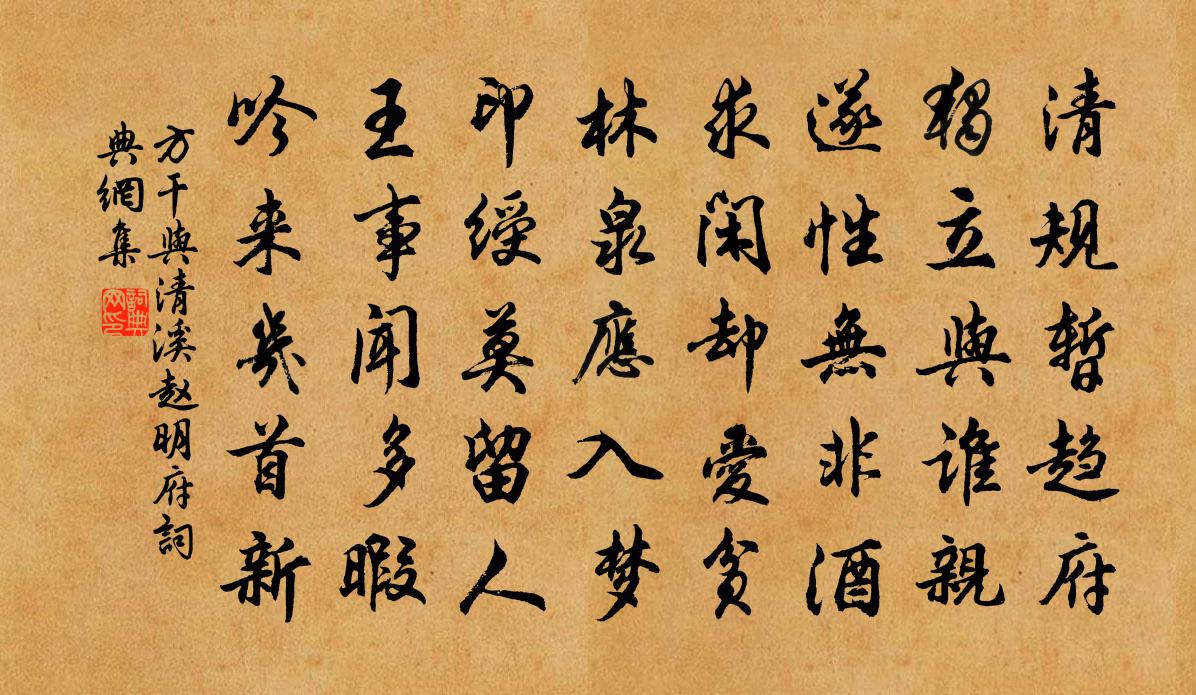 清規暫趋府
獨立與誰親
遂性無非酒
求閑却愛貧
林泉應入梦
印綬莫留人
王事聞多暇
吟来幾首新
方干與清溪赵明府詞
典網集
詞典
网印